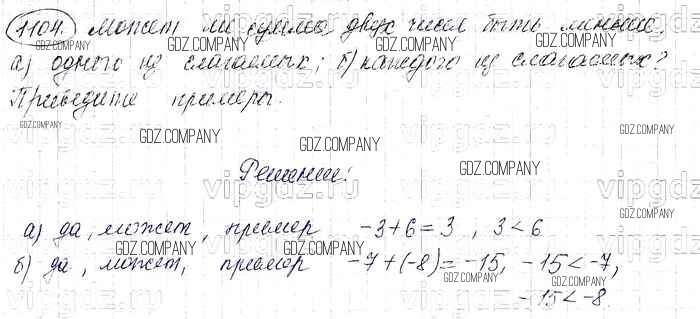 1104. Может ли сумма двух чисел быть меньше:
GDZ.COMPANY GDZ.COMPANY GDZ.COMPANY
а) одного из слагаемых; б) каждого из слагаемых?
Приведите примеры.
GDZ.COMPANY
vipgdz.ru vipgdz.ru vipgdz
GDZ.COMPANY GDZ.COMPANY
Решение:
GDZ.COMPANY
vipgdz.ru vipgdz.ru vipgdz
GDZ.COMPANY GDZ.COMPANY GDZ.COMPANY
а) да, может, пример -3+6=3, 3<6
GDZ.COMPANY GDZ.COMPANY
б) да, может, пример -7+(-8)=-15, -15<-7,
GDZ.COMPANY GDZ.COMPANY
vipgdz.ru vipgdz.ru vipgdz
-15<-8